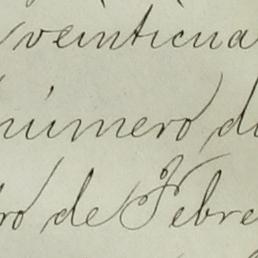 veinticua
número di
ro de Febre